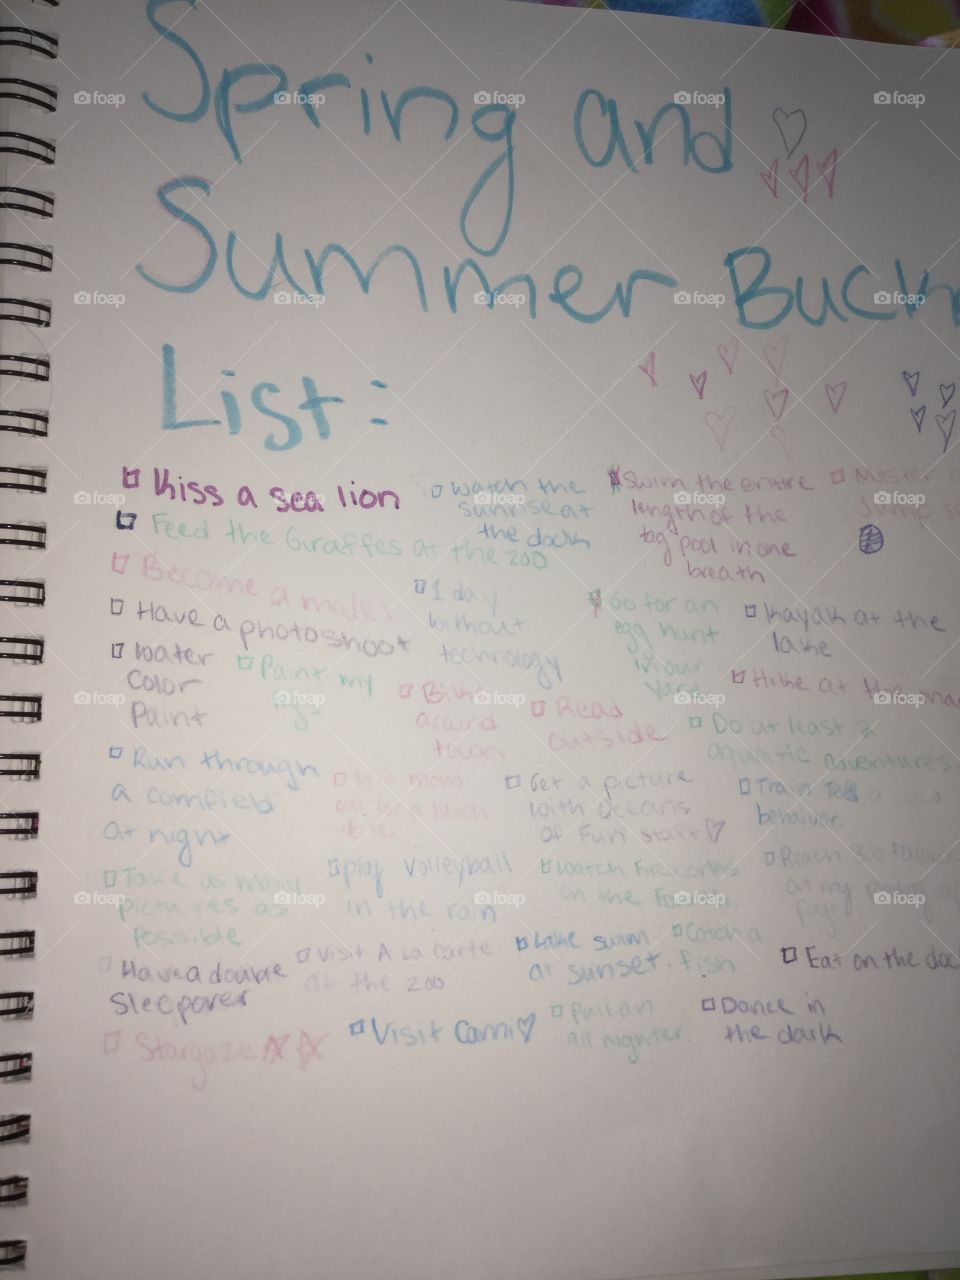 Spring and
Summer Buck
List:
Kiss a sea lion
Watch the
sunrise at
the dock
Swim the entire
length of the
pool in one
breath
Master
Jump
Feed the Giraffes at the zoo
Become a model
1 day
without
technology
Go for an
egg hunt
in our
yard
Kayak at the
lake
Have a photoshoot
Water
Color
Paint
Paint my
Bike
around
Read
outside
Hike at the
Do at least 2
aquatic adventures.
Run through
a cornfield
at night
mom
lunch
Get a picture
with oceans
of Fun staff
Train
behavior.
Take as many
pictures as
Possible
play volleyball
in the rain
Watch Fireworks
on the
Reach 300
on my
page
Have a double
Sleepover
Visit A La Carte
at the zoo
Lake swim
at sunset.
Catch a
fish
Eat on the
Stargaze
Visit Cami
Pull an
all nighter.
Dance in
the dark
foap